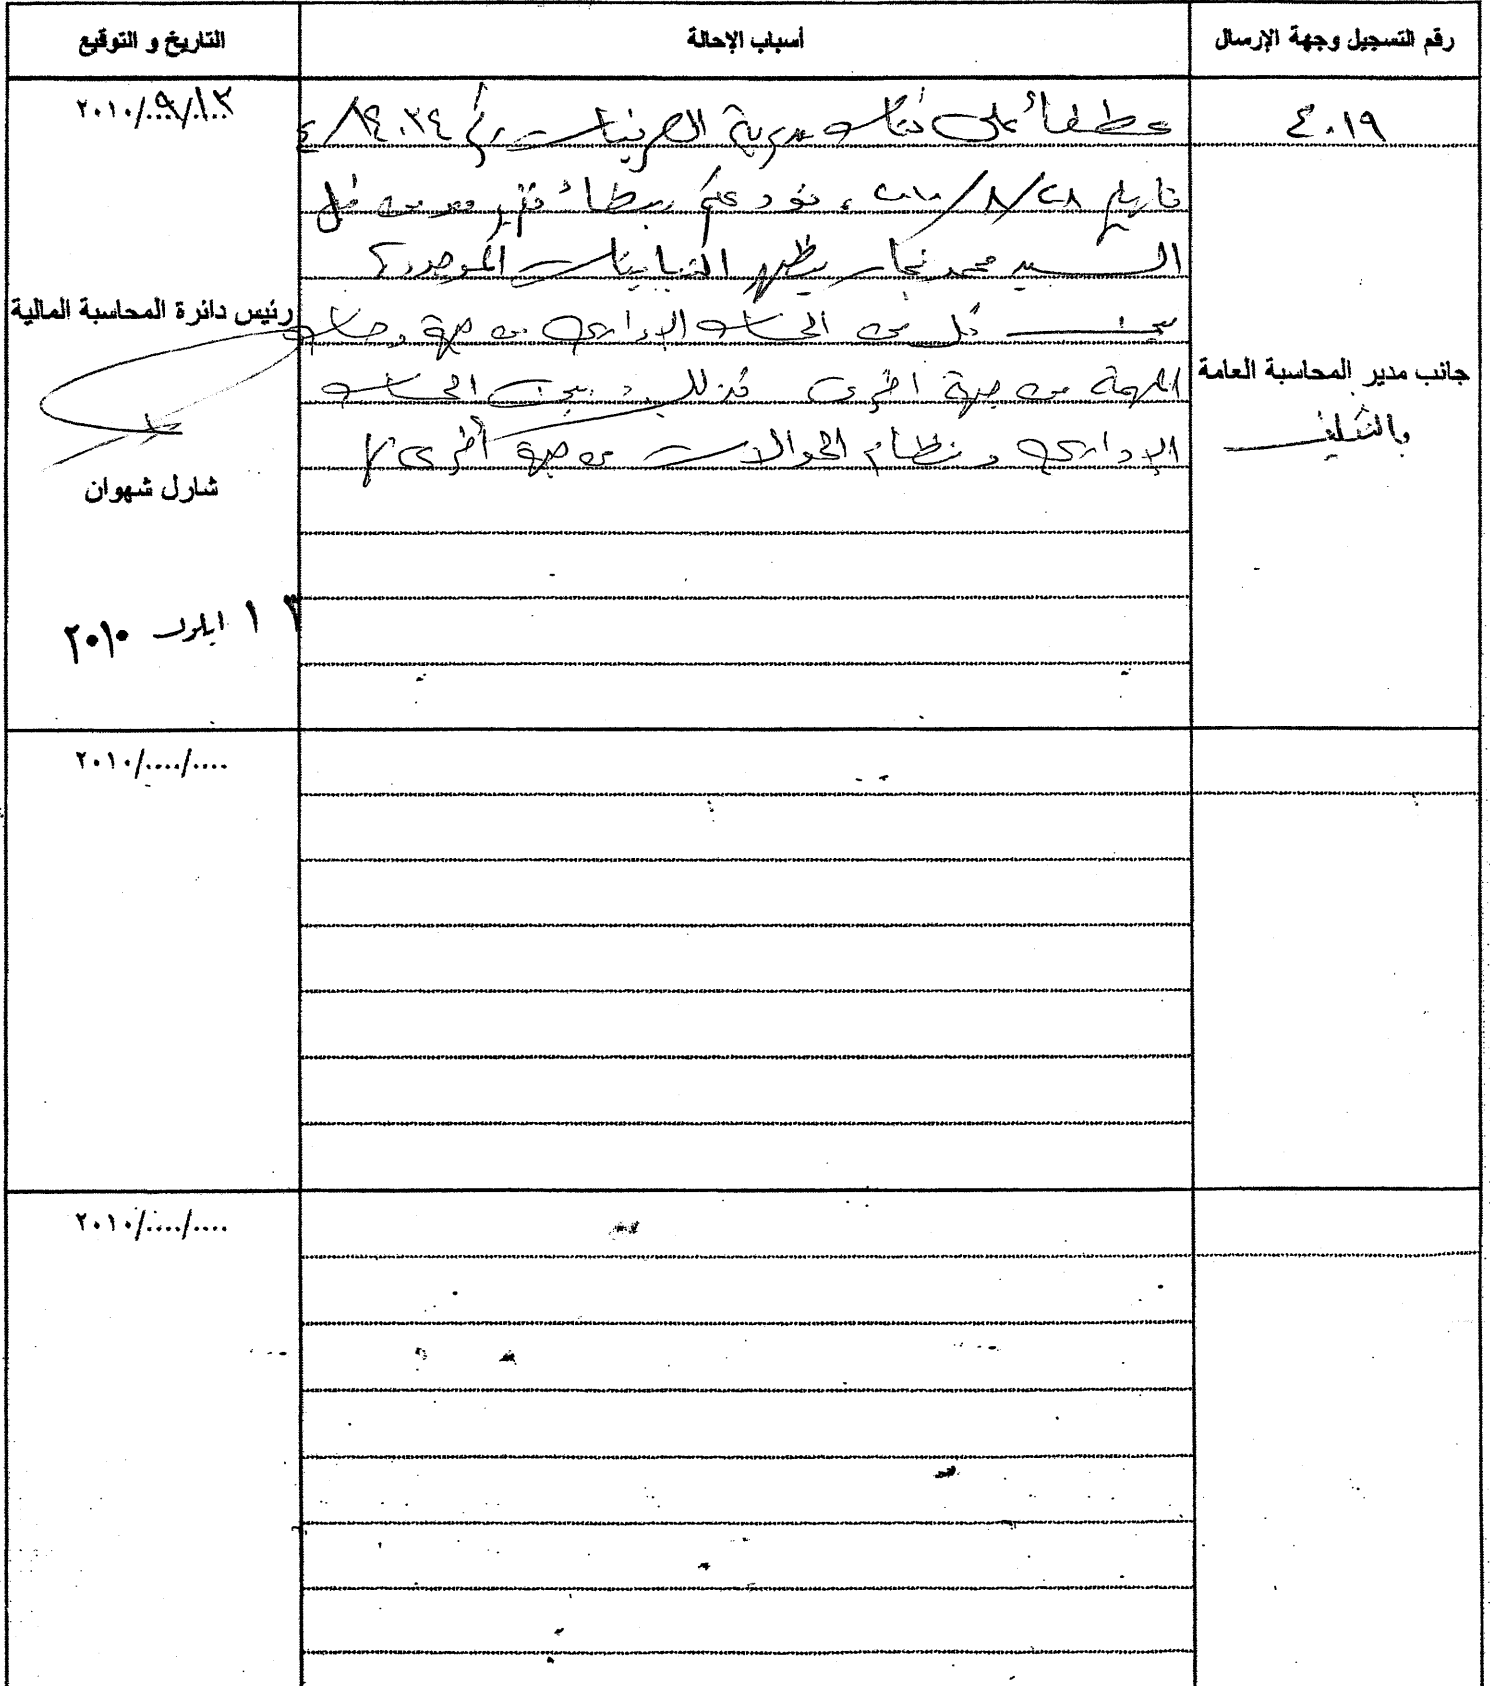 رقم التسجيل وجهة الإرسال
أسباب الإحالة
التاريخ و التوقيع
٤٠١٩
جانب مدير المحاسبة العامة
بالتكليف
عطفاً على كتاب مديرية الصرفيات رقم
تاريخ ٢٨/٨/٢٠١٠، نودعكم ربطاً تقرير معد من قبل
السيد محمد نجار يظهر التباينات الموجودة
بين كل من الحساب الإداري من جهة وحساب
المهمة من جهة أخرى كذلك بين الحساب
الإداري ونظام الحوالات من جهة أخرى
٢٠١٠/٩/١٣
رئيس دائرة المحاسبة المالية
شارل شهوان
١٣ ايلول ٢٠١٠
٢٠١٠/..../....
٢٠١٠/..../....